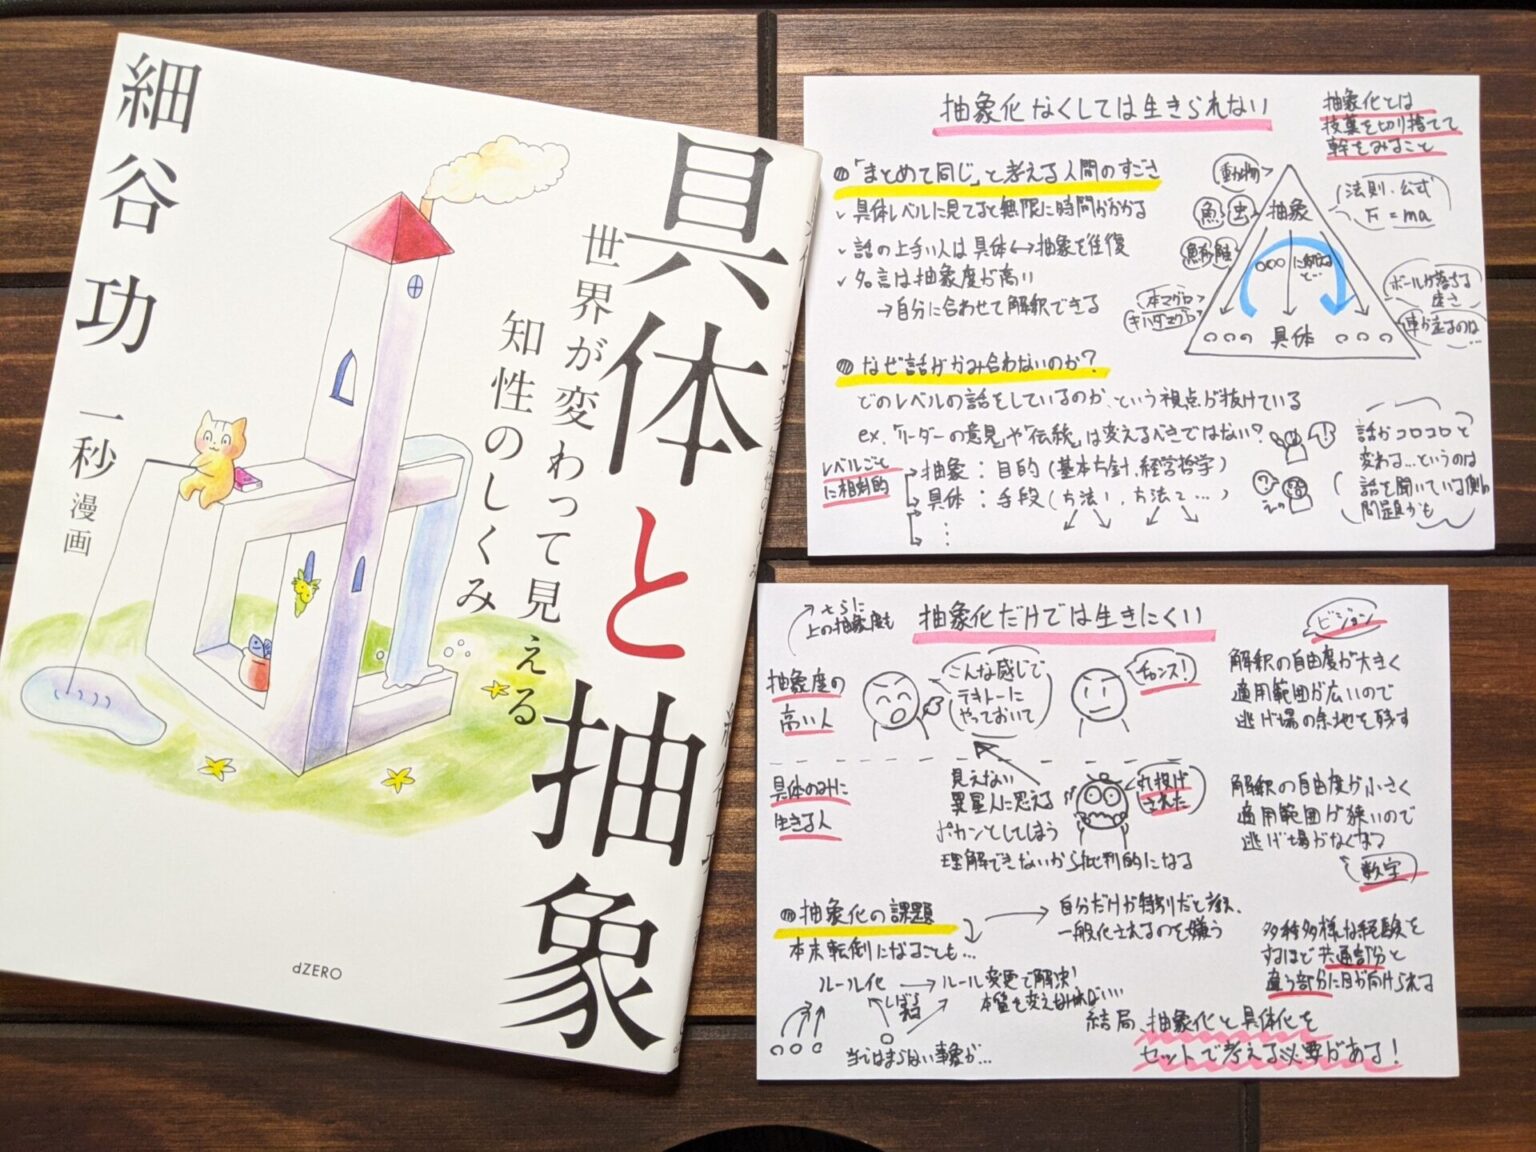 細谷 功
一秒 漫画
具体と抽象
世界が変わって見える
知性のしくみ
dZERO
抽象化なくしては生きられない
抽象化とは
枝葉を切り捨てて
幹をみること
「まとめて同じ」と考える人間のすごさ
✓ 具体レベルに見てると無限に時間がかかる
✓ 話の上手い人は具体↔抽象を往復
✓ 名言は抽象度が高い
→自分に合わせて解釈できる
動物
魚
虫
抽象
法則・公式
F = ma
本マグロ
キハダマグロ
ボールが落ちる
速さ
車が走るのは…
○○○ 具体 ○○○
なぜ話がかみ合わないのか?
どのレベルの話をしているのか、という視点が抜けている
ex.「リーダーの意見」や「伝統」は変えるべきではない?
レベルごと
に相対的
抽象:目的(基本方針,経営哲学)
具体:手段(方法1,方法2…)
話がコロコロと
変わる…というのは
話を聞いている側の
問題かも
さらに
上の抽象度も
抽象化だけでは生きにくい
ビジョン
抽象度の
高い人
こんな感じで
テキトーに
やっておいて
チャンス!
解釈の自由度が大きく
適用範囲が広いので
逃げ場の余地を残す
具体のみに
生きる人
見えない
異星人に思える
ポカンとしてしまう
理解できないから批判的になる
丸投げ
された
解釈の自由度が小さく
適用範囲が狭いので
逃げ場がなくなる
数字
抽象化の課題
本末転倒になることも…
自分だけが特別だと考え、
一般化されるのを嫌う
ルール化 → ルール変更で解決!
しばる
本質を変えなければ…
当てはまらない事象が…
多種多様な経験を
するほど共通部分と
違う部分に目が向けられる
結局、抽象化と具体化を
セットで考える必要がある!